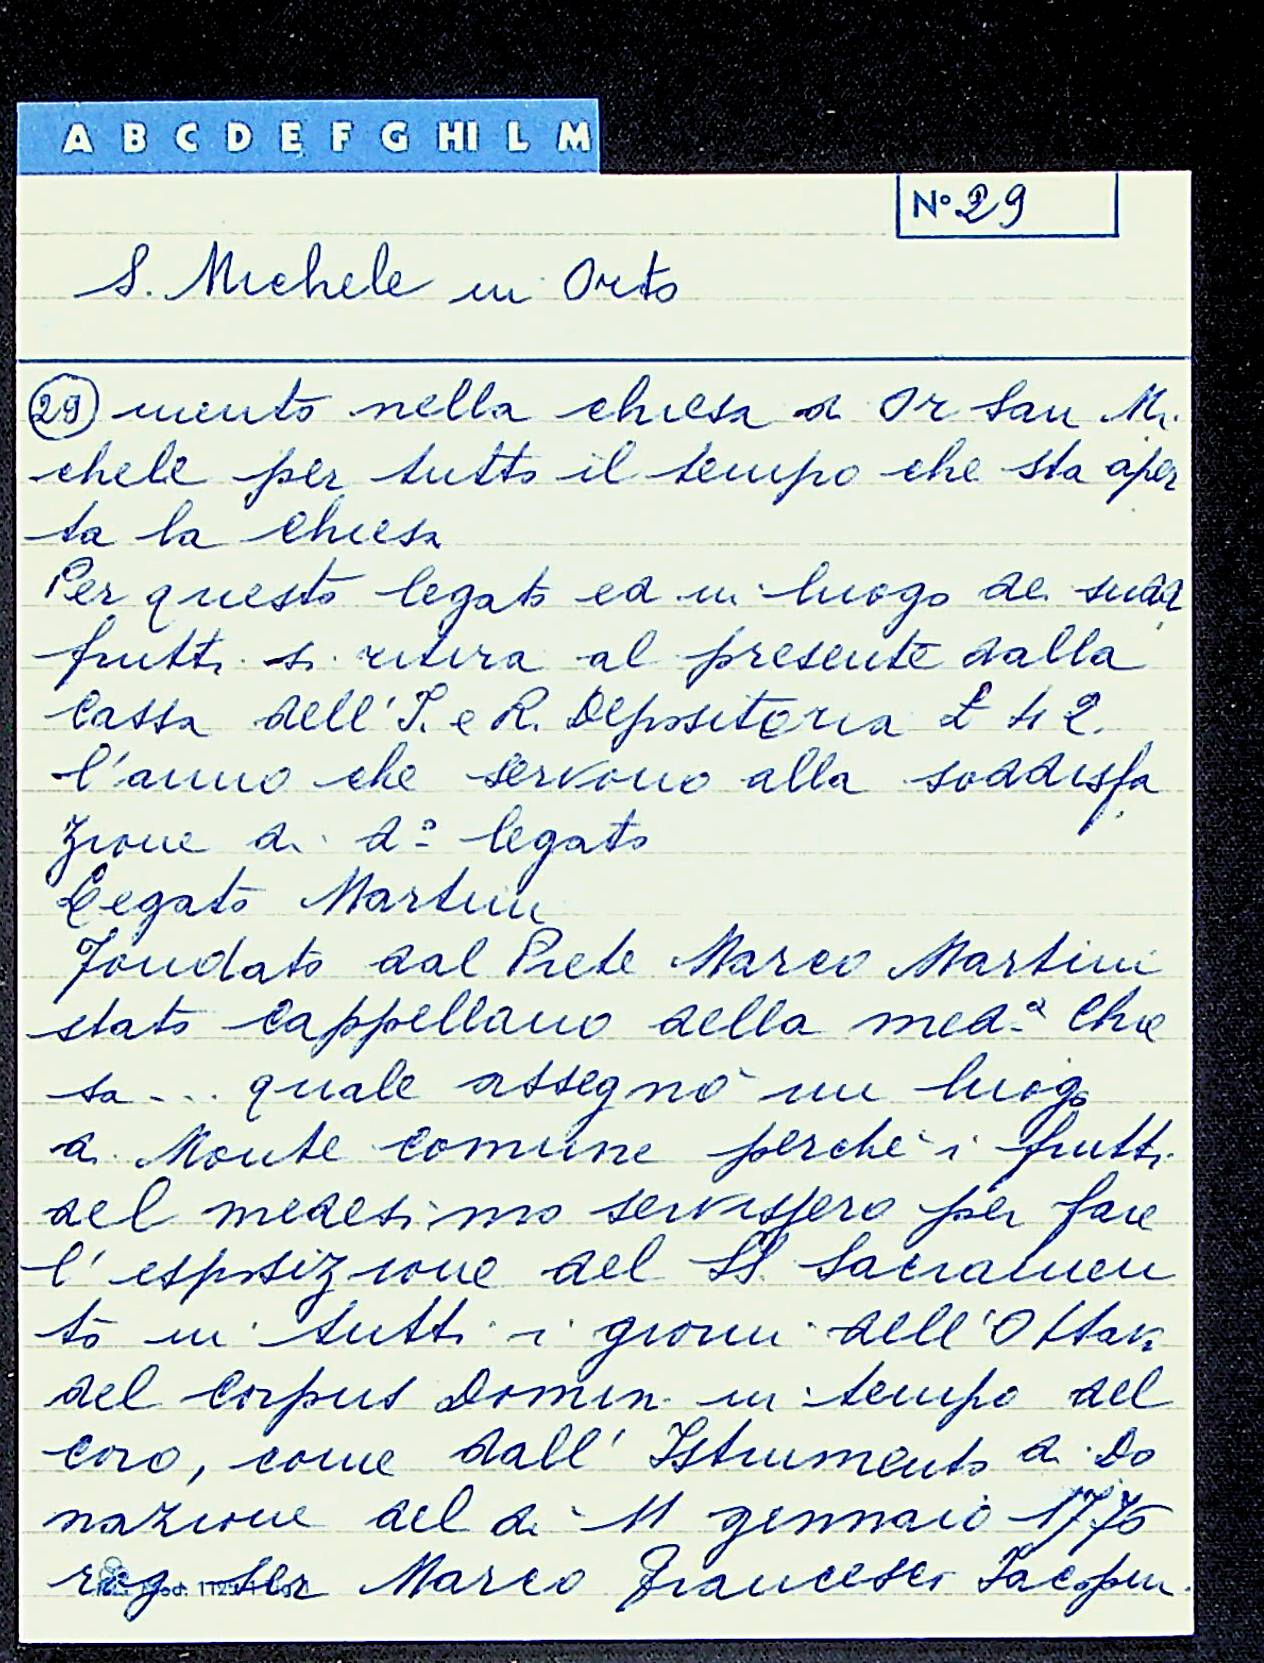 A B C D E F G HI L M
N° 29
S. Michele in Orto
29 mento nella chiesa di Or San Mi
chele per tutto il tempo che sta aper
ta la chiesa
Per questo legato ed in luogo dei sudd
frutti si ritira al presente dalla
Cassa dell'I. e R. Depositeria £ 42.
l'anno che servono alla soddisfa
zione di d.° legato
Legato Martini
Fondato dal Prete Marco Martini
stato Cappellano della med.a Chie
sa ... quale assegnò un luogo
di Monte comune perchè i frutti
del medesimo servissero per fare
l'esposizione del SS. Sacramen
to in tutti i giorni dell'Ottava
del Corpus Domini in tempo del
coro, come dall'Istrumento di Do
nazione del dì 11 gennaio 1775
rog ser Marco Francesco Jacopini